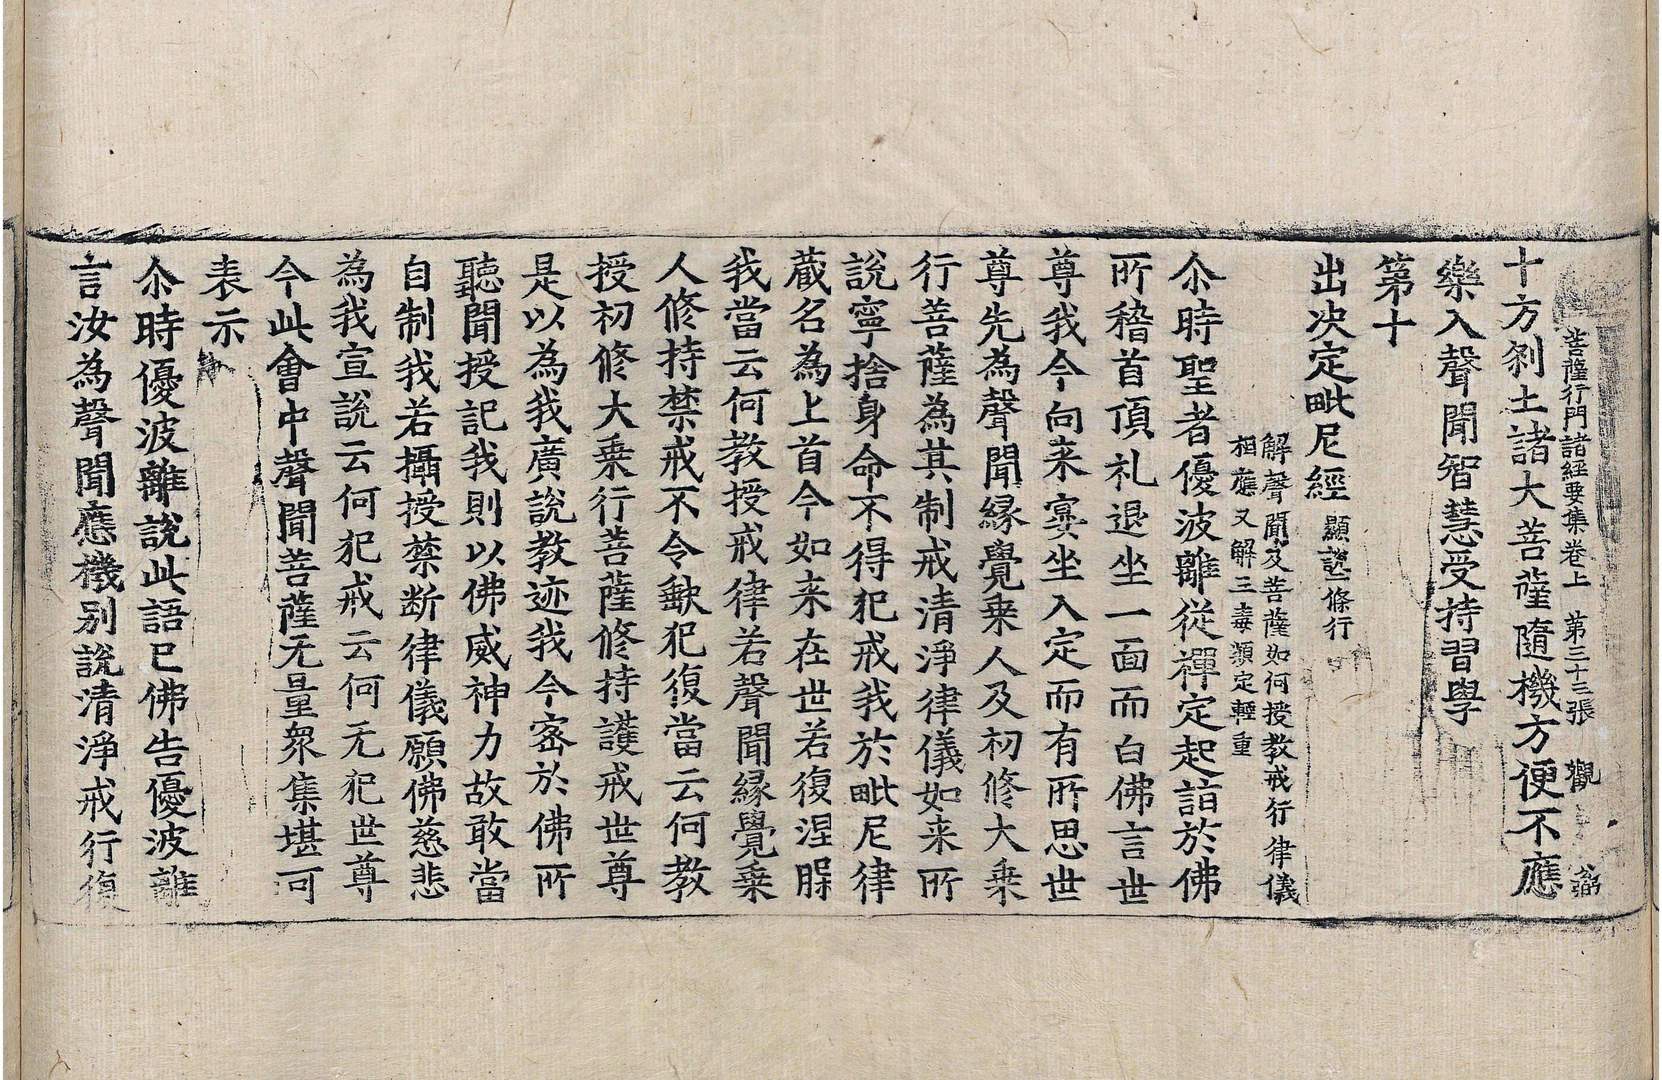 菩薩行門諸經要集卷上　第三十三張　觀
十方刹土諸大菩薩隨機方便不應
樂入聲聞智慧受持習學
第十
出决定毗尼經　顯說一條行
解聲聞及菩薩如何授教戒行律儀
相應又解三毒類定輕重
尒時聖者優波離從禪定起詣於佛
所稽首頂礼退坐一面而白佛言世
尊我今向来寞坐入定而有所思世
尊先為聲聞緣覺乗人及初修大乗
行菩薩為其制戒清淨律儀如来所
說寧捨身命不得犯戒我於毗尼律
蔵名為上首今如来在世若復涅槃
我當云何教授戒律若聲聞緣覺乗
人修持禁戒不令歔犯復當云何教
授初修大乗行菩薩修持護戒世尊
是以為我廣說教迹我今密於佛所
聽聞授記我則以佛威神力故敢當
自制我若攝授禁断律儀願佛慈悲
為我宣說云何犯戒云何无犯世尊
今此會中聲聞菩薩无量衆集堪可
表示
尒時優波離說此語已佛告優波離
言汝為聲聞應機别說清淨戒行復